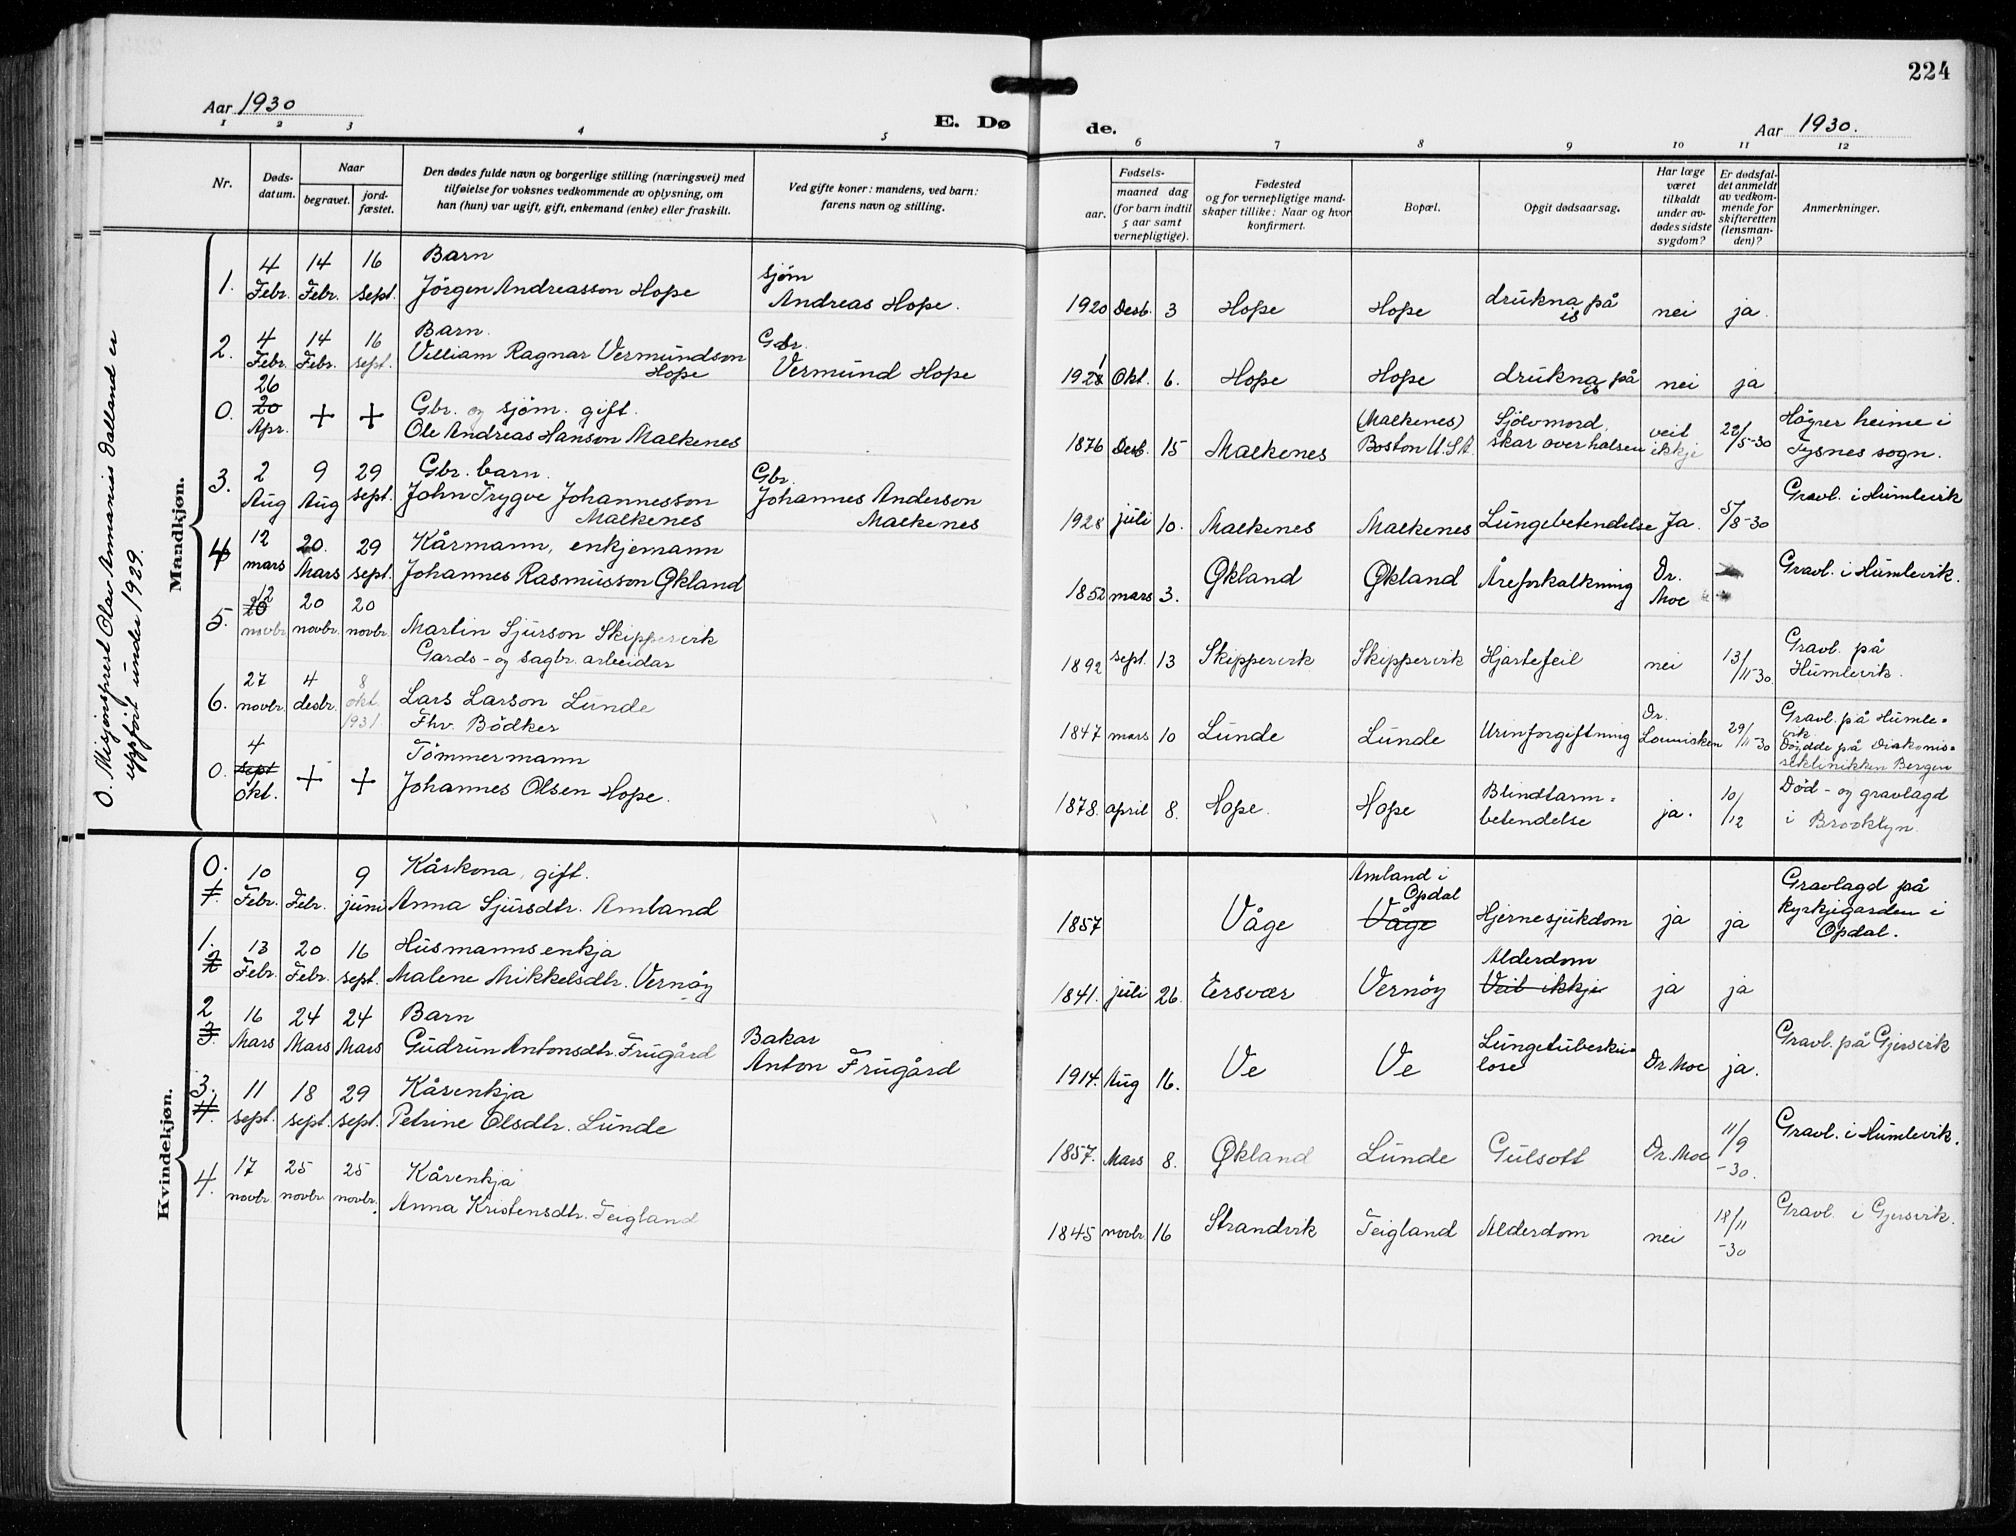 224
Aar 1930
E. Dø
de.
Aar 1930.
1 2 3 4 5 6 7 8 9 10 11 12
Nr.
Døds-
datum.
Naar
begravet.
jord-
fæstet.
Den dødes fulde navn og borgerlige stilling (næringsvei) med
tilføielse for voksnes vedkommende av oplysning, om
han (hun) var ugift, gift, enkemand (enke) eller fraskilt.
Ved gifte koner: mandens, ved barn:
farens navn og stilling.
Fødsels-
aar.
maaned dag
(for barn indtil
5 aar samt
vernepligtige).
Fødested
og for vernepligtige mand-
skaper tillike: Naar og hvor
konfirmert.
Bopæl.
Opgit dødsaarsag.
Har læge
været
tilkaldt
under av-
dødes sidste
sygdom?
Er dødsfal-
det anmeldt
av vedkom-
mende for
skifteretten
(lensman-
den)?
Anmerkninger.
O. Misjonsprest Olav Ammanius Dalland er
uppført under 1929.
Mandkjøn.
4 14 16 Barn sjøm
1. Febr. Febr. Sept. Jörgen Andreasson Hope Andreas Hope. 1920 Desb. 3 Hope Hope drukna på is nei ja.
4 14 16 Barn. Gbr.
2. Febr. Febr. sept. Villiam Ragnar Vermundson Hope Vermund Hope 1921 Okt. 6. Hope Hope drukna på is nei ja
26
20
O. Apr. + + Gbr. og sjøm. gift.
Ole Andreas Hanson Malkenes 1876 Desb. 15 Malkenes (Malkenes) Boston U.S.A. Sjölvmord, skar over halsen veit ikkje 22/5-30 Högrer heime i Tysnes sogn.
2 9 29 Gbr. barn. Gbr.
3. Aug Aug sept. John Trygve Johannesson Malkenes Johannes Anderson Malkenes 1928 juli 10. Malkenes Malkenes Lungebetendelse Ja. 5/8-30 Gravl. i Humlevik
12 20. 29 Kårmann, enkjemann
4 mars Mars sept. Johannes Rasmusson Økland 1852 mars 3. Økland Økland Åreforkalkning Dr. Moe Gravl. i Humlevik.
12
20 20 20
5. novbr. novbr. novbr. Martin Sjurson Skippervik
Gards- og sagbr. arbeidar 1892 sept. 13 Skippervik Skippervik Hjartefeil nei 13/11-30. Gravl. på Humlevik.
27 4 8
6. novbr. desbr. okt. 1931. Lars Larson Lunde
Fhv. Bödker 1847 mars 10 Lunde Lunde Urinforgiftning Dr. 29/11-30 Gravl. på Humle-
vik
Döydde på Diakonis-
seklinikken Bergen
4 Tömmermann
O. sept okt. + + Johannes Olsen Hope. 1878. april 8. Hope. Hope Blindtarm-
betendelse ja. 10/12 Död- og gravlagd
i Brooklyn.
Kvindekjøn.
O. 10 9 Kårkona, gift.
1. Febr. Febr. juni Anna Sjursdtr. Amland 1857 Våge Amland i Opdal Våge Hjernesjukdom ja ja Gravlagd på
kyrkjegarden i
Opdal.
1. 13 20 16 Husmannsenkja
2 Febr. Febr. sept. Malene Mikkelsdtr. Vernöy 1841. juli 26. Ersvær Vernöy Alderdom Veit ikkje ja ja
2 16 24 24 Barn Bakar
3. Mars Mars Mars Gudrun Antonsdtr. Frugård Anton Frugård 1914. Aug 16. Ve Ve Lungetuberku-
lose Dr. Moe ja. Gravl. på Gjersvik
3. 11 18 29 Kårenkja
4. sept. sept. sept. Petrine Olsdtr. Lunde 1857. Mars 8. Økland Lunde Gulsott Dr. Moe 11/9 -30. Gravl. i Humlevik.
17 25 25 Kårenkja
4. novbr. novbr. novbr. Anna Kristensdtr. Teigland 1845 novbr. 16 Strandvik Teigland Alderdom nei 18/11 -30 Gravl. i Gjersvik.